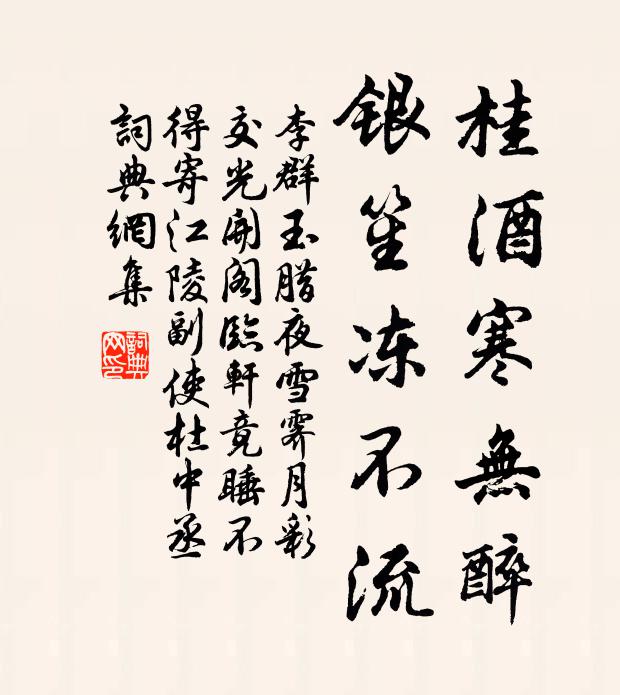 桂酒寒無醉
銀笙冻不流
李群玉腊夜雪霽月彩
交光開阁臨軒竟睡不
得寄江陵副使杜中丞
詞典網集
詞典